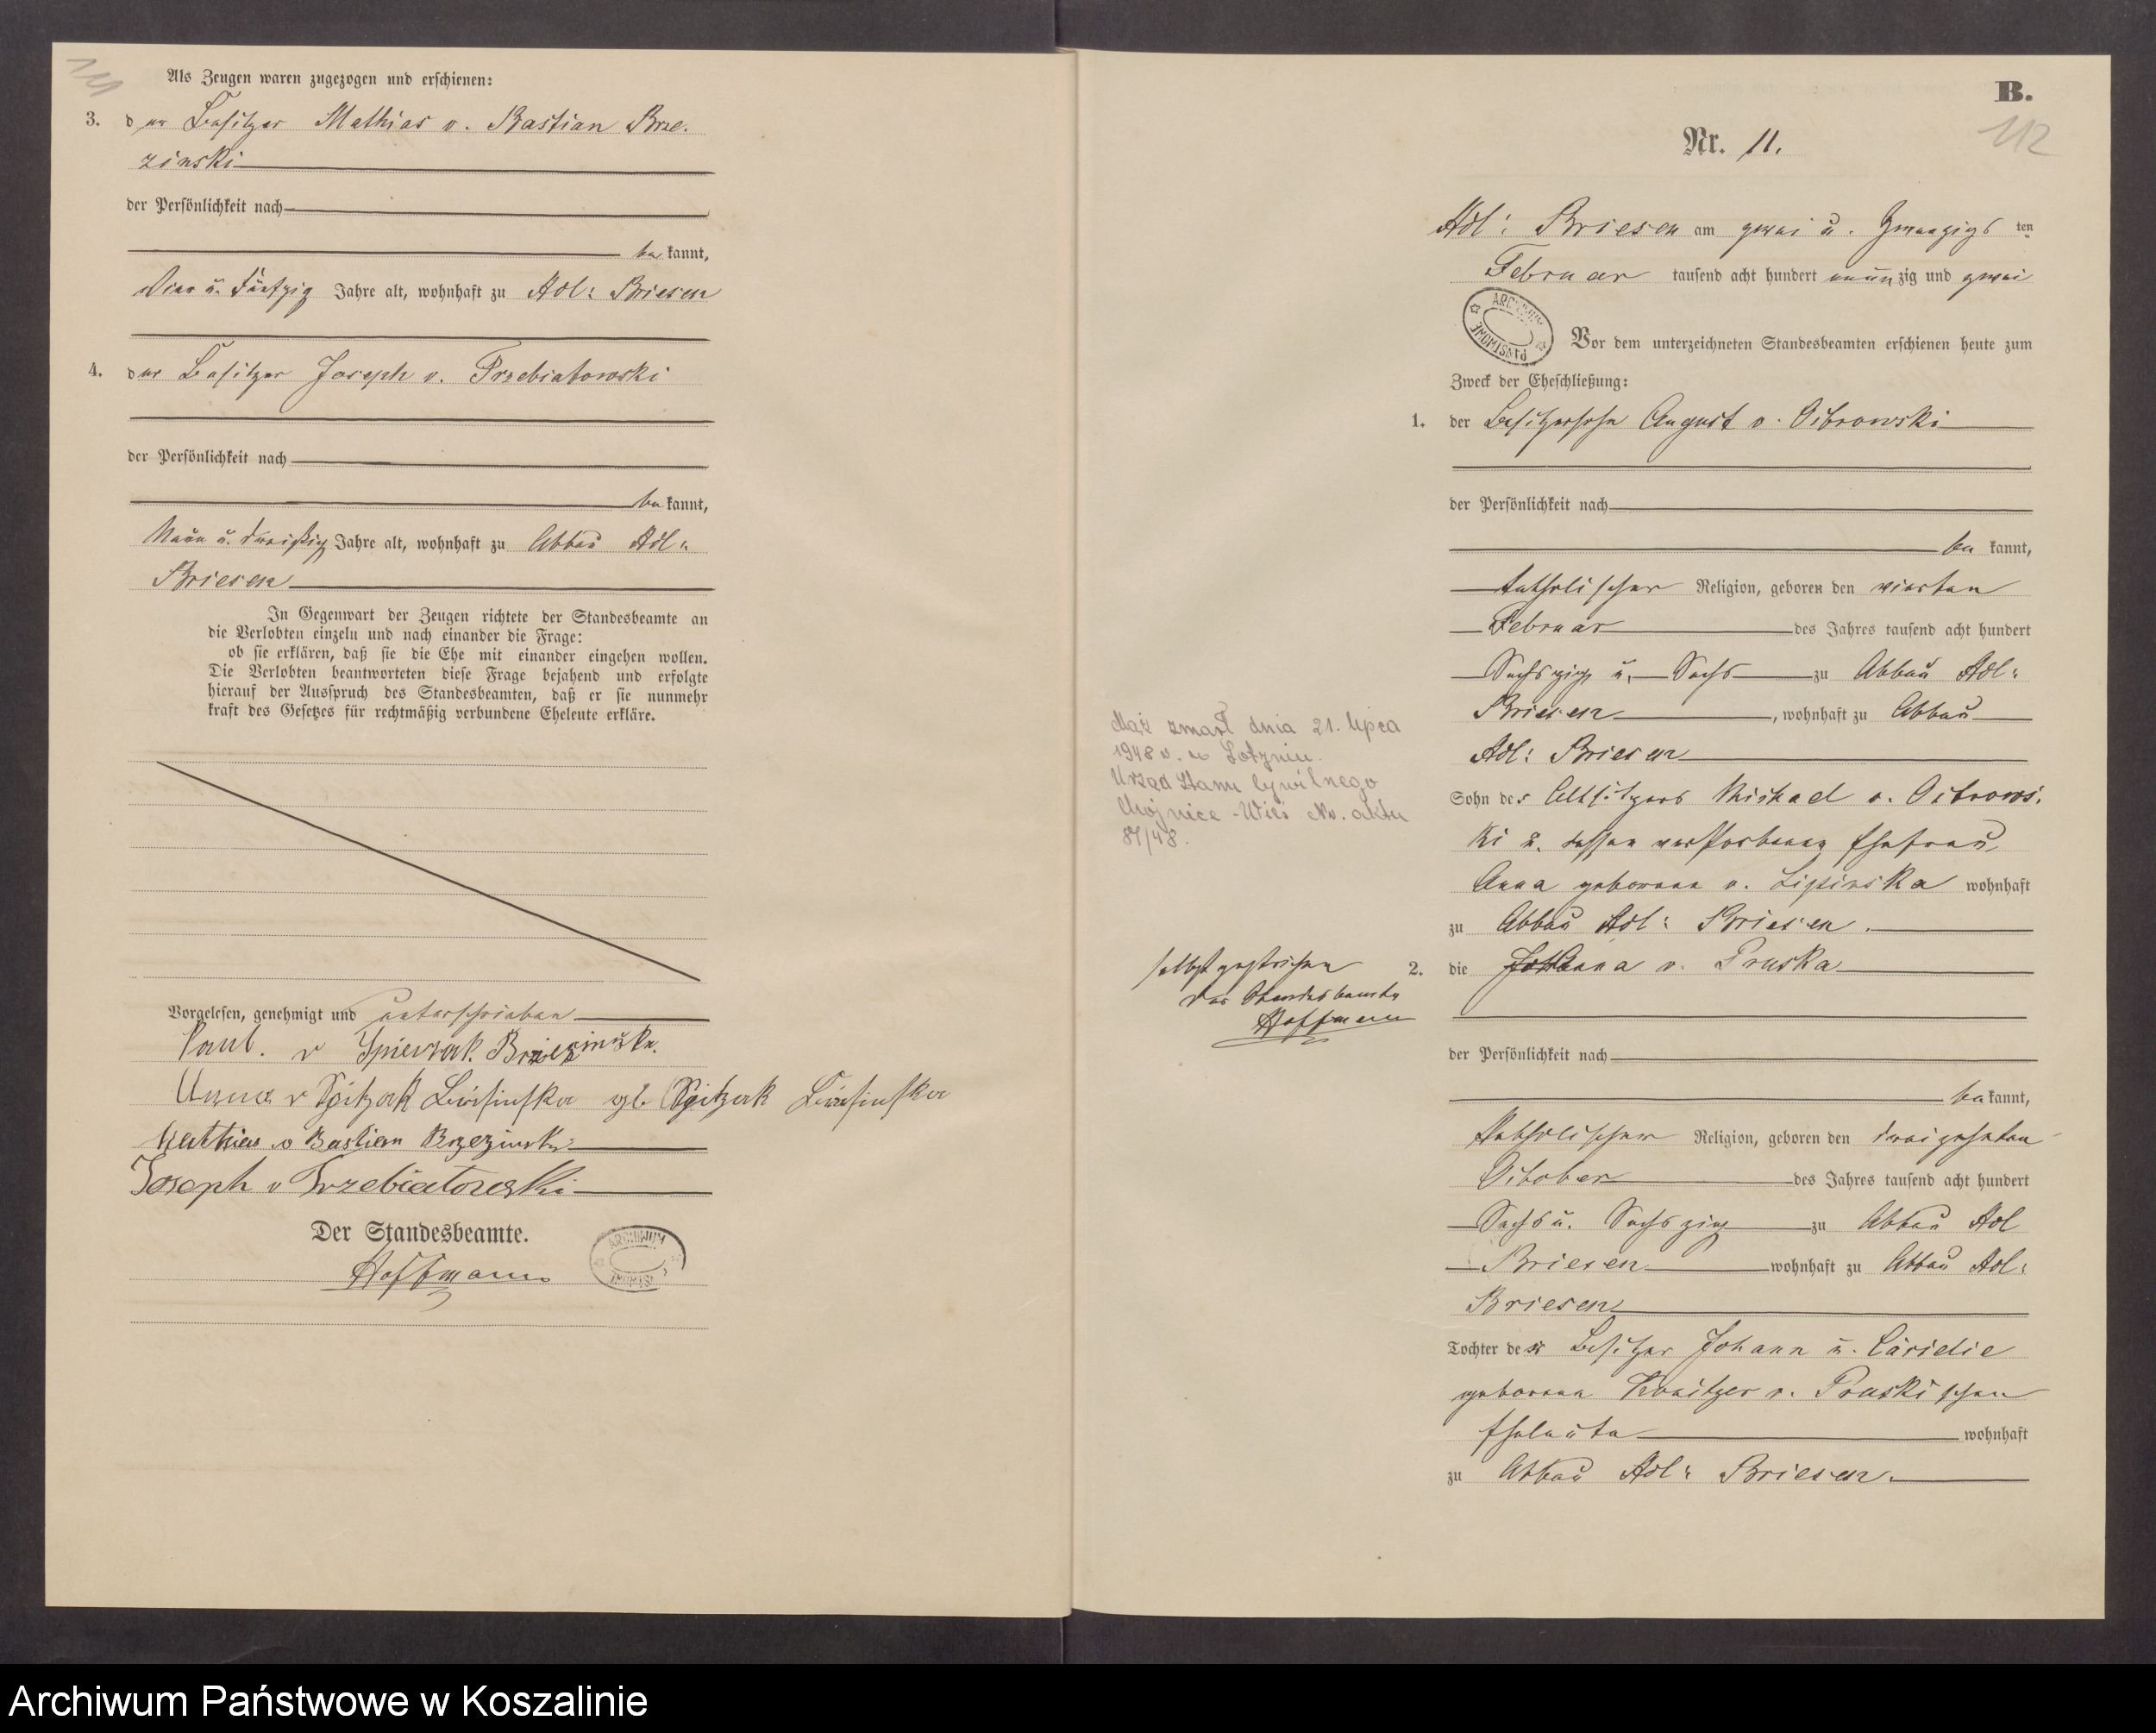 111
Als Zeugen waren zugezogen und erschienen:
3. der Besitzer Mathias v. Bastian Brze-
zinski
der Persönlichkeit nach
be kannt,
Vier u. Fünfzig Jahre alt, wohnhaft zu Adl: Briesen
4. der Besitzer Joseph v. Trzebiatowski
der Persönlichkeit nach
be kannt,
Neun u. dreißig Jahre alt, wohnhaft zu Abbau Adl:
Briesen
In Gegenwart der Zeugen richtete der Standesbeamte an
die Verlobten einzeln und nach einander die Frage:
ob sie erklären, daß sie die Ehe mit einander eingehen wollen.
Die Verlobten beantworteten diese Frage bejahend und erfolgte
hierauf der Ausspruch des Standesbeamten, daß er sie nunmehr
kraft des Gesetzes für rechtmäßig verbundene Eheleute erkläre.
Vorgelesen, genehmigt und unterschrieben
Paul v
Anna v
Mathias v Bastian Brzezinski
Joseph v Trzebiatowski
Der Standesbeamte.
Hoffmann
ARCHIWUM
B.
112
Nr. 11.
Adl: Briesen am zwei u. Zwanzigs ten
Februar tausend acht hundert neun zig und zwei
ARCHIWUM PAŃSTWOWE
Vor dem unterzeichneten Standesbeamten erschienen heute zum
Zweck der Eheschließung:
1. der Besitzersohn August v.
der Persönlichkeit nach
be kannt,
katholischer Religion, geboren den vierten
Februar des Jahres tausend acht hundert
Sechszig u. Sechs zu Abbau Adl:
Briesen, wohnhaft zu Abbau
Adl: Briesen
Sohn des Altsitzers Michael v.
ki u. dessen verstorbenen Ehefrau
Anna geborene v. Lipinska wohnhaft
zu Abbau Adl: Briesen.
2. die anna v. Pruska
der Persönlichkeit nach
be kannt,
katholischer Religion, geboren den dreizehnten
October des Jahres tausend acht hundert
Sechs u. Sechszig zu Abbau Adl
Briesen wohnhaft zu Abbau Adl:
Briesen
Tochter der Besitzer Johann u.
geborene v. Pruskischen
Eheleute wohnhaft
zu Abbau Adl: Briesen.
Mąż zmarł dnia 21. lipca
1948 r. w
Urząd Stanu Cywilnego
Chojnice - Wieś Nr. aktu
87/48.
selbst gestrichen
Der Standesbeamte
Hoffmann
Archiwum Państwowe w Koszalinie